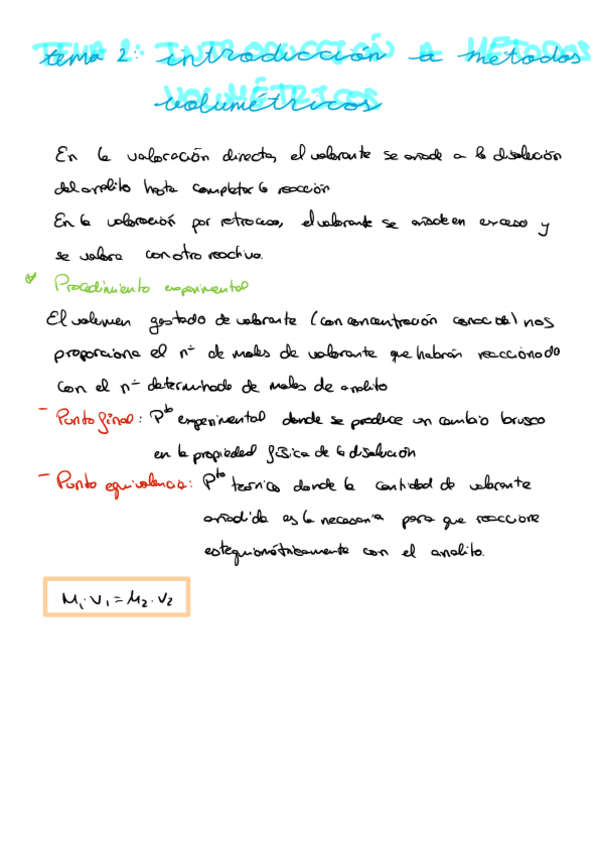 tema 2: introducción a métodos
volumétricos
En la valoración directa, el valorante se añade a la disolución
del analito hasta completar la reacción
En la valoración por retroceso, el valorante se añade en exceso y
se valora con otro reactivo.
* Procedimiento experimental
El volumen gastado de valorante (con concentración conocida) nos
proporciona el nº de moles de valorante que habrán reaccionado
con el nº determinado de moles de analito
- Punto final: Pto experimental donde se produce un cambio brusco
en la propiedad física de la disolución
- Punto equivalencia: Pto teórico donde la cantidad de valorante
añadida es la necesaria para que reaccione
estequiométricamente con el analito.
M₁·V₁ = M₂·V₂